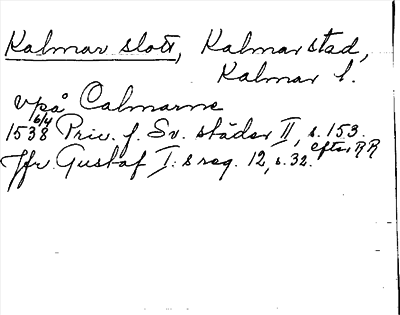 Kalmar slott, Kalmar stad,
Kalmar l.
vpå Calmarne
1538 6/4 Priv. f. Sv. städer II, s. 153.
efter RR
Jfr. Gustaf I:s reg. 12, s. 32.